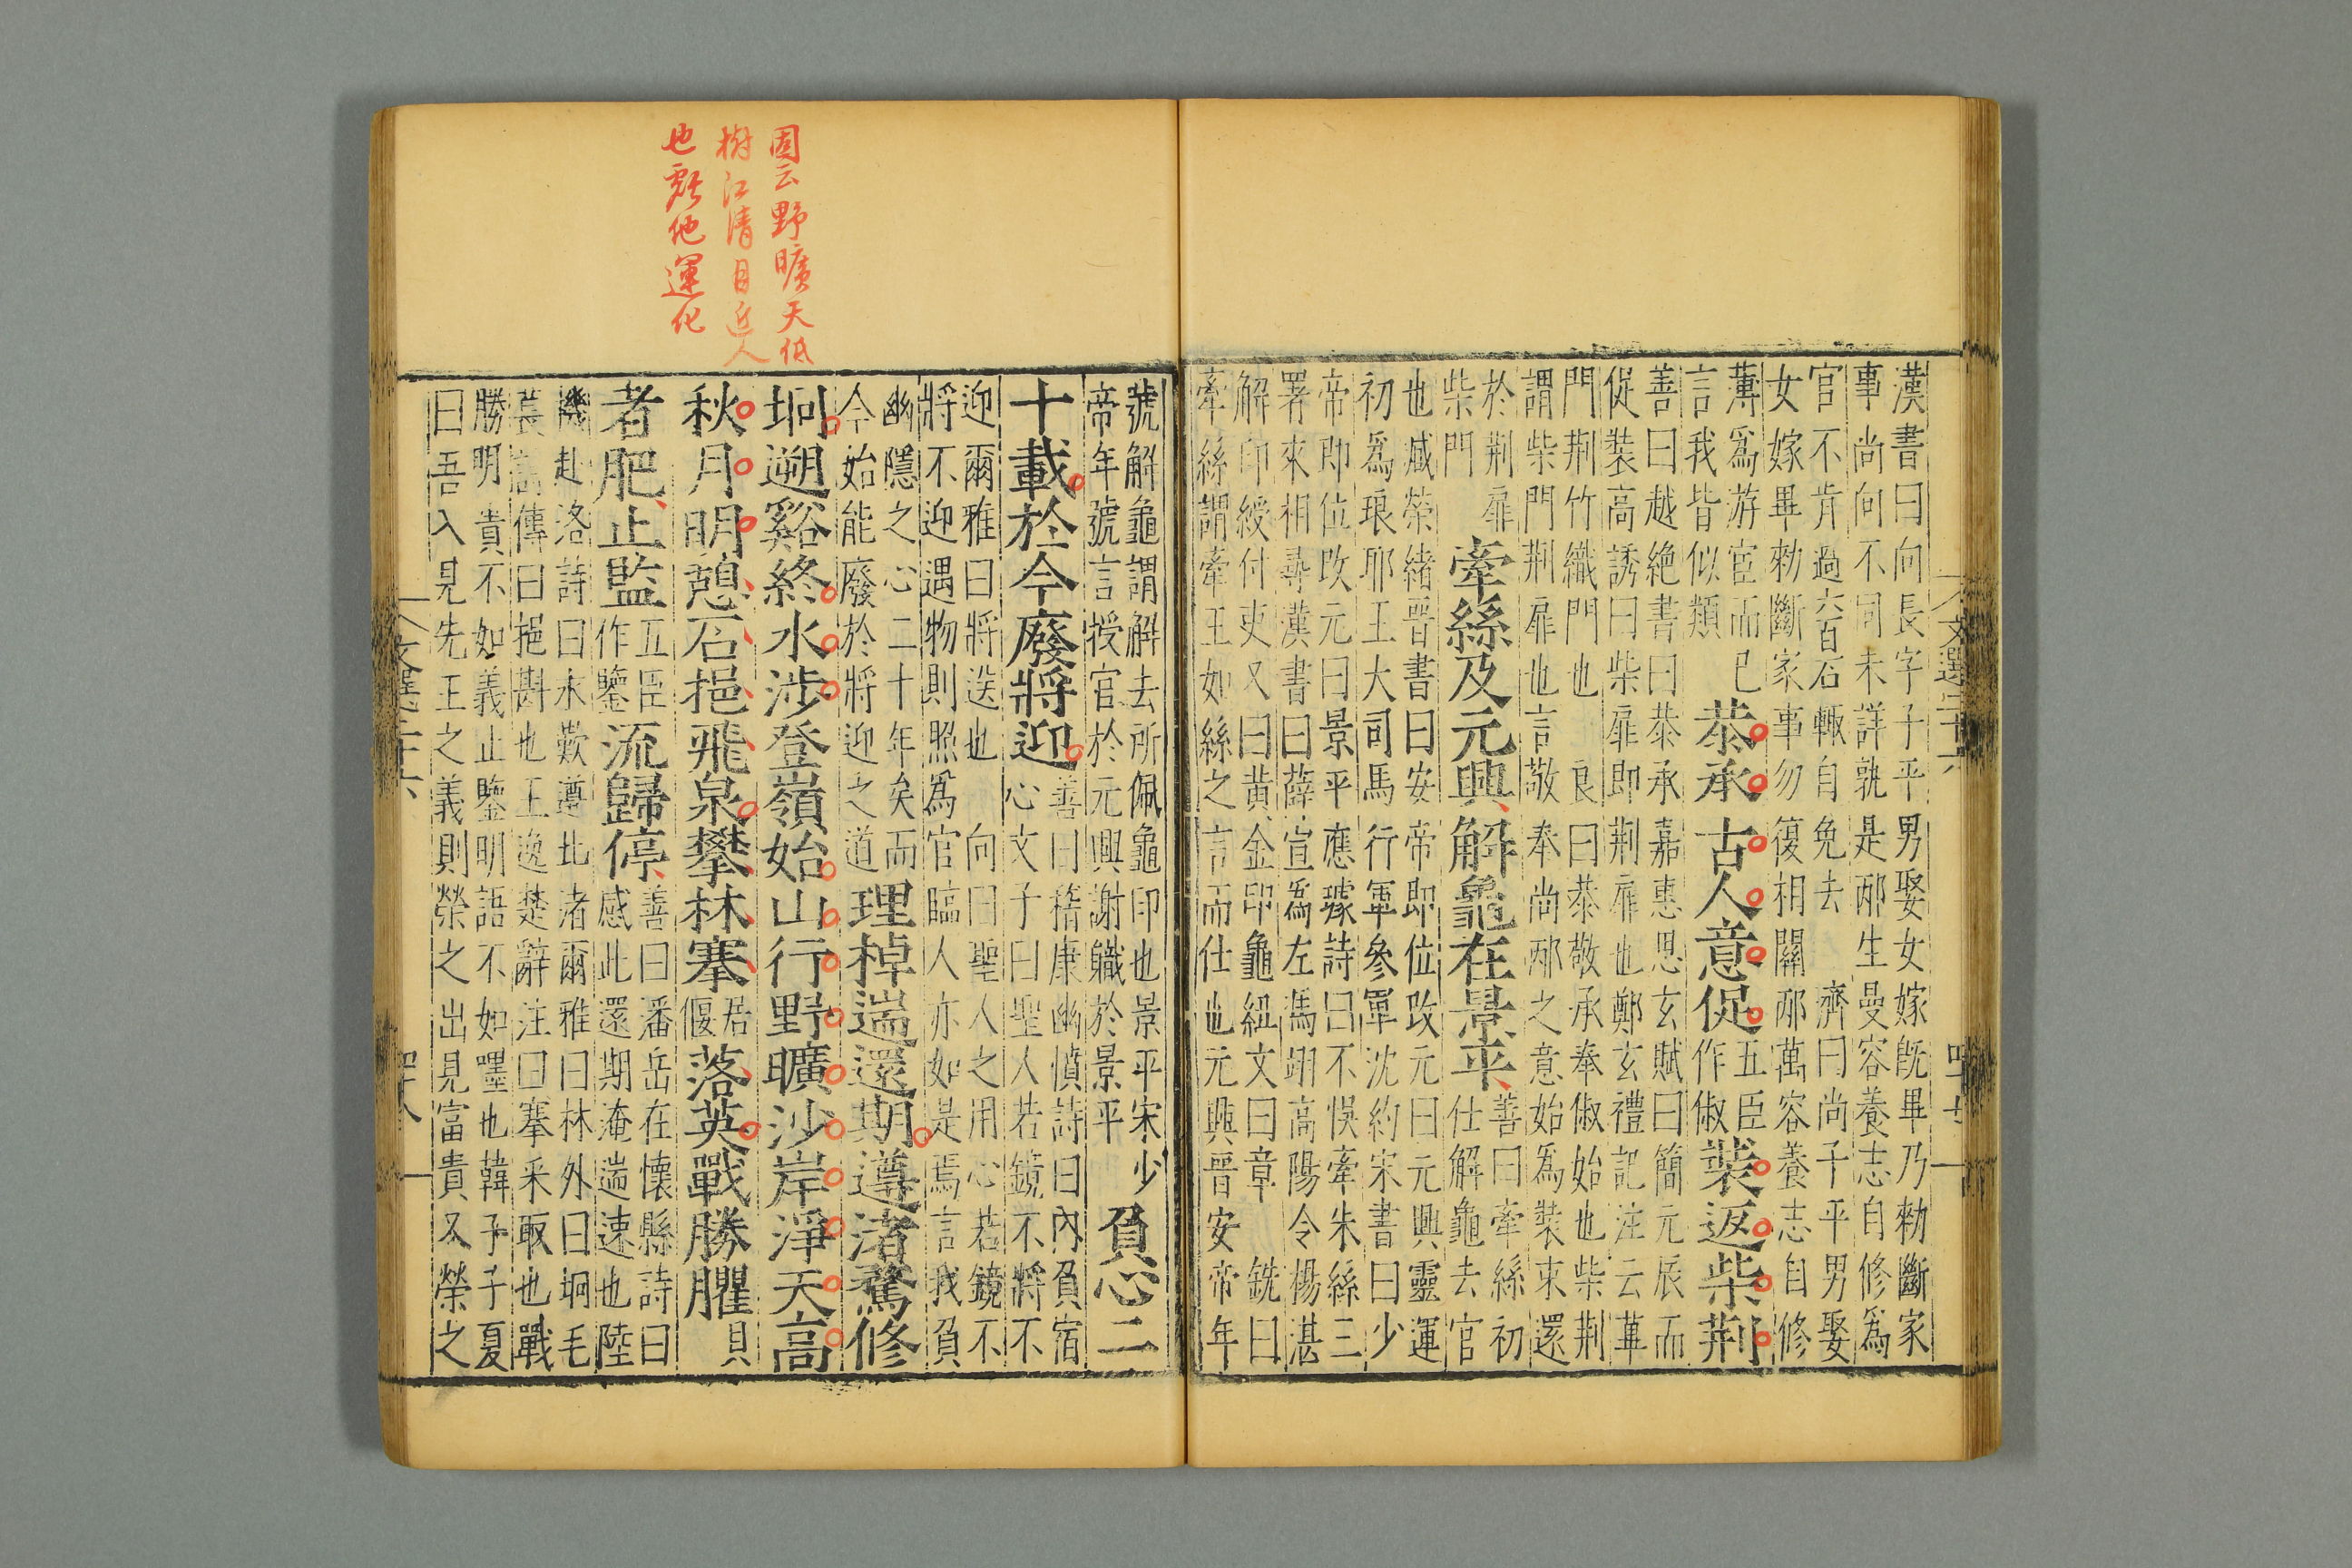 漢書曰向長字子平男娶女嫁既畢乃勑斷家
事尚向不同未詳孰是邴生曼容養志自修爲
官不肯過六百石輙自免去 濟曰尚子平男娶
女嫁畢勑斷家事勿復相關邴萬容養志自修
薄爲游宦而已
言我皆似類
恭承古人意促
五臣
作俶
裝返柴荆
善曰越絶書曰恭承嘉惠思玄賦曰簡元辰而
促裝高誘曰柴扉即荆扉也鄭玄禮記注云蓽
門荆竹織門也 良曰恭敬承奉俶始也柴荆
謂柴門荆扉也言敬奉尚邴之意始爲裝束還
於荆扉
柴門
牽絲及元興解龜在景平
善曰牽絲初
仕解龜去官
也臧榮緒晉書曰安帝即位改元曰元興靈運
初爲琅耶王大司馬行軍參軍沈約宋書曰少
帝即位改元曰景平應璩詩曰不悮牽朱絲三
署來相尋漢書曰薛宣爲左馮翊高陽令楊湛
解印綬付吏又曰黃金印龜紐文曰章 銑曰
牽絲謂牽王如絲之言而仕也元興晉安帝年
號解龜謂解去所佩龜印也景平宋少
帝年號言授官於元興謝職於景平
負心二
十載於今廢將迎
善曰嵇康幽憤詩曰內負宿
心文子曰聖人若鏡不將不
迎爾雅曰將送也 向曰聖人之用心若鏡不
將不迎遇物則照爲官臨人亦如是焉言我負
幽隱之心二十年矣而
今始能廢於將迎之道
理棹遄還期遵渚騖修
坰遡谿終水涉登嶺始山行野曠沙岸淨天高
秋月明憩石挹飛泉攀林搴
居
偃
落英戰勝臞
貝
者肥止監
五臣
作鑒
流歸停
善曰潘岳在懷縣詩曰
感此還期淹遄速也陸
機赴洛詩曰永歎遵北渚爾雅曰林外曰坰毛
萇詩傳曰挹㪺也王逸楚辭注曰搴采取也戰
勝明貴不如義止鑒明語不如嘿也韓子子夏
曰吾入見先王之義則榮之出見富貴又榮之
文選二十六
四十七
文選二十六
四十八
固云野曠天低
樹江清月近人
也䖏他運化